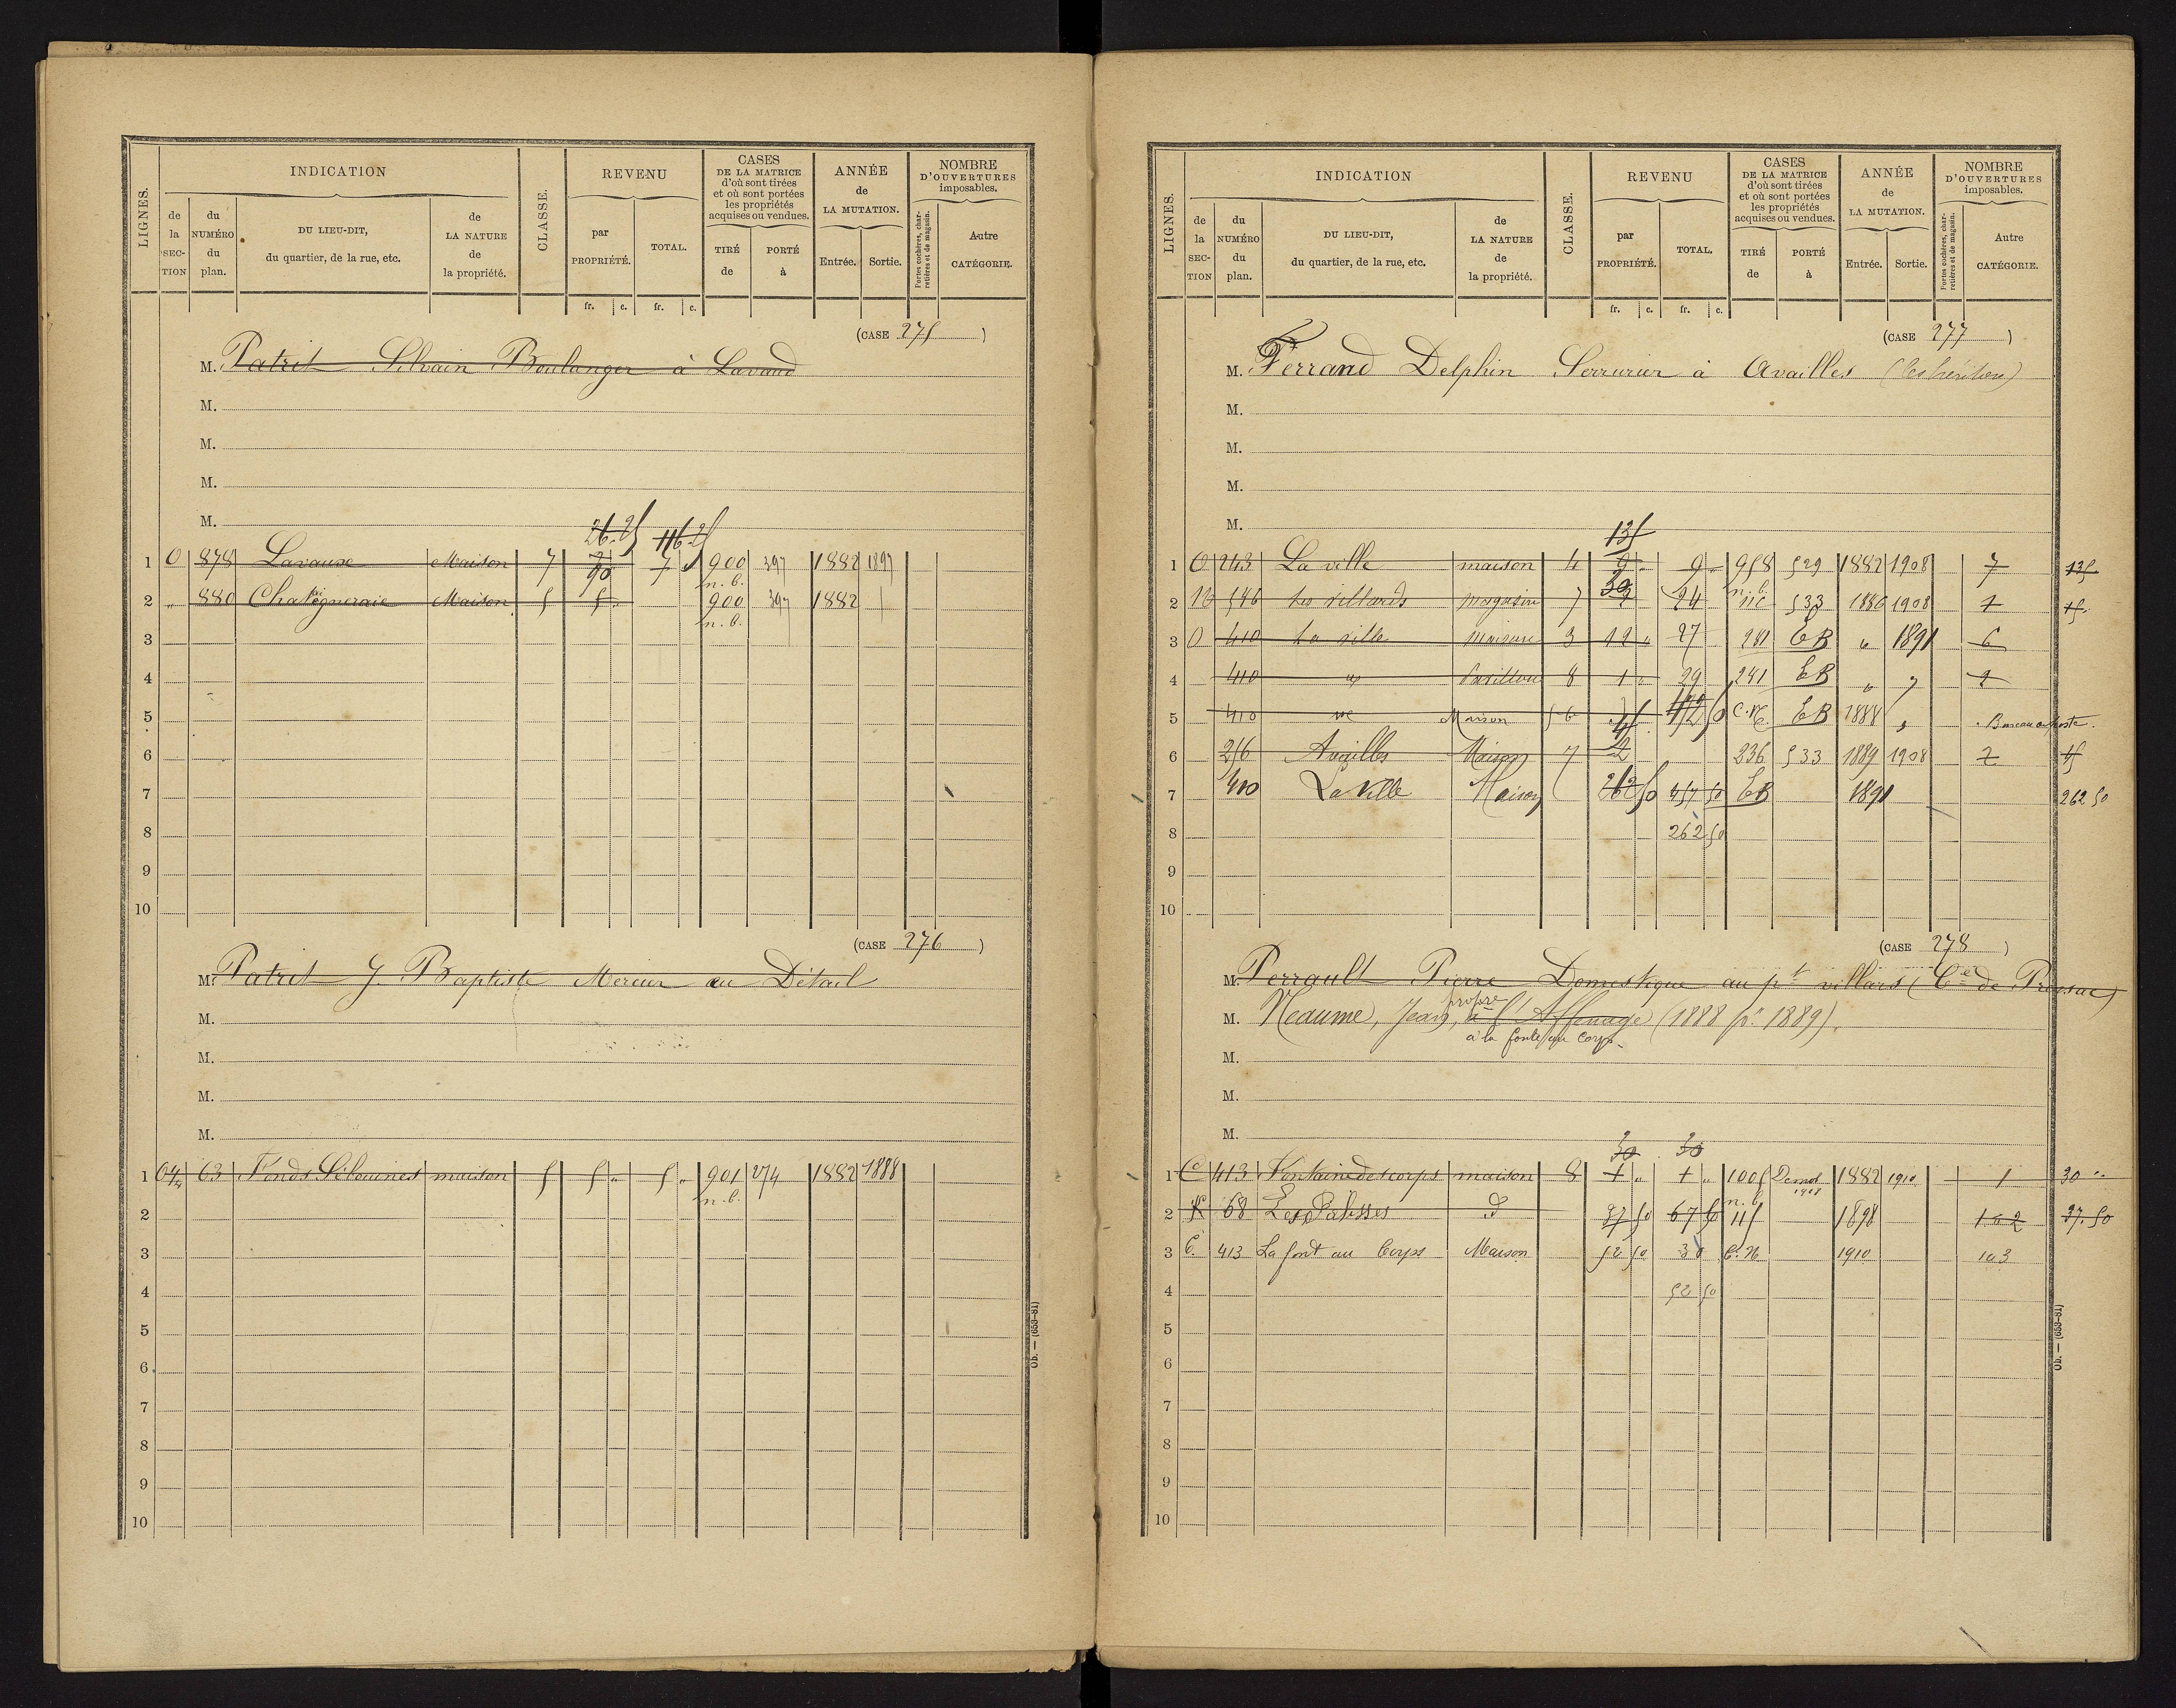 LIGNES. INDICATION CLASSE. REVENU CASES DE LA MATRICE d'où sont tirées et où sont portées les propriétés acquises ou vendues. ANNÉE de LA MUTATION. NOMBRE D'OUVERTURES imposables.
de la SECTION du NUMÉRO du plan. DU LIEU-DIT, du quartier, de la rue, etc. de LA NATURE de la propriété. par PROPRIÉTÉ. TOTAL. TIRÉ de PORTÉ à Entrée. Sortie. Portes cochères, charretières et de magasin. Autre CATÉGORIE.
fr. c. fr. c.
(CASE 275)
M. Patrit Silvain Boulanger à Lavaud
M.
M.
M.
M.
26.25 116.25
1 O 878 Lavause Maison 7 90 7 900 397 1882 1897
n. b.
2 " 880 Chateigneraie Maison 5 5 900 397 1882
n. b.
3
4
5
6
7
8
9
10
(CASE 276)
M. Patrit J. Baptiste Mercier au Détail
M.
M.
M.
M.
1 63 Fonds maison 5 5 " 5 " 901 274 1882 1888
n. b.
2
3
4
5
6
7
8
9
10
Ob. — (653-81)
LIGNES. INDICATION CLASSE. REVENU CASES DE LA MATRICE d'où sont tirées et où sont portées les propriétés acquises ou vendues. ANNÉE de LA MUTATION. NOMBRE D'OUVERTURES imposables.
de la SECTION du NUMÉRO du plan. DU LIEU-DIT, du quartier, de la rue, etc. de LA NATURE de la propriété. par PROPRIÉTÉ. TOTAL. TIRÉ de PORTÉ à Entrée. Sortie. Portes cochères, charretières et de magasin. Autre CATÉGORIE.
fr. c. fr. c.
(CASE 277)
M. Ferrand Delphin Serrurier à Availles (les heritiers)
M.
M.
M.
M.
135
1 O 243 La ville maison 4 9 " 9 " 958 529 1882 1908 7 135
n. b.
2 546 Les villards magasin 7 30 24 533 1886 1908 1 15
3 O 410 La ville maison 3 12 " 27 281 CB " 1891 6
4 410 Pavillon 8 1 " 29 241 CB " " 2
5 410 Maison C.N. CB 1888 " Bureau de poste.
6 256 Availles Maison 7 2 236 533 1889 1908 2 45
7 410 La Ville Maison 262 50 457 50 CB 1891 262 50
8 262 50
9
10
(CASE 278)
M. Perrault Pierre Domestique au pt villars (Cne de Pressac)
M. Neaume, Jean, propre à l'Affenage (1888 pr 1889).
à la font au Corps.
M.
M.
M.
30 30
1 C 413 Fontaine des corps maison 8 1 " 1 " 1005 Demol 1908 1882 1910 1 30 "
n. b.
2 K 68 Les Palisses d 37 50 67 50 115 1898 1 à 2 37.50
3 C. 413 La font au Corps Maison 52 50 30 C.N. 1910 1 à 3
4 52 50
5
6
7
8
9
10
Ob. — (653-81)